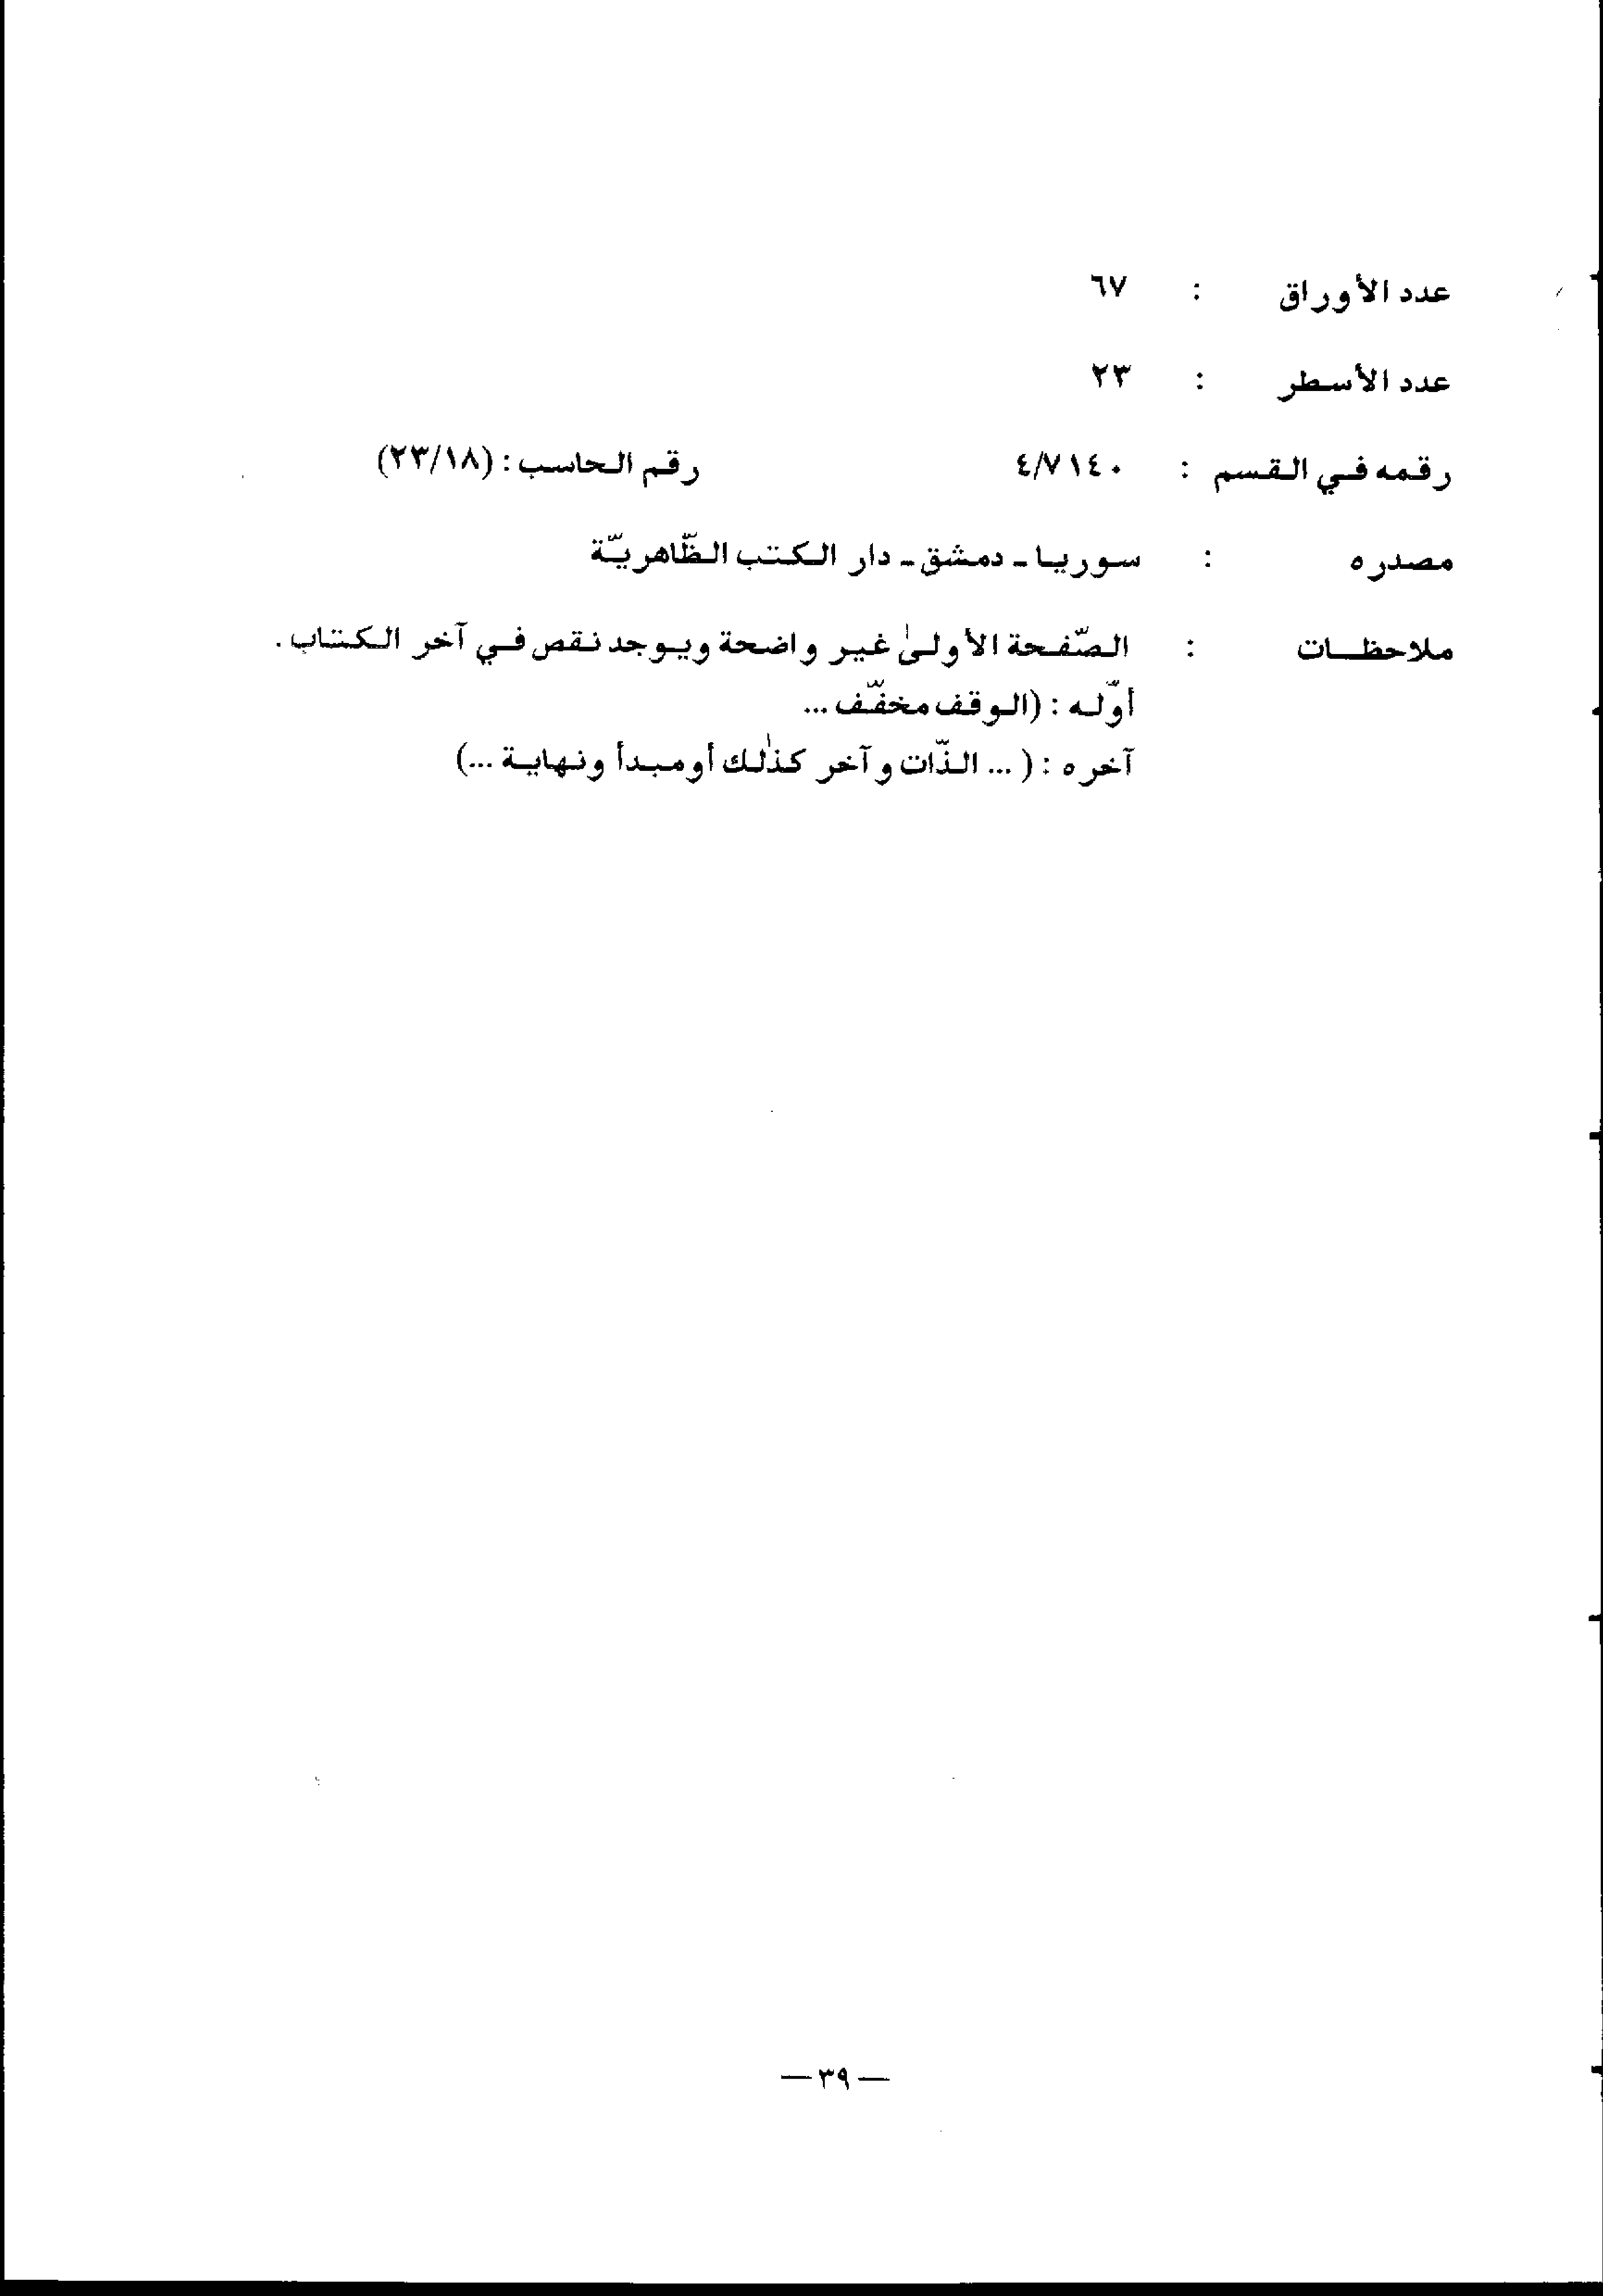 عدد الأوراق : ٦٧
عدد الأسطر : ٢٣
رقمه في القسم : ٤/٧١٤٠ رقم الحاسب : (٢٣/١٨)
مصدره : سوريا ـ دمشق ـ دار الكتب الظّاهريّة
ملاحظات : الصّفحة الأولىٰ غير واضحة ويوجد نقص في آخر الكتاب .
أوّله : (الوقف مخفّف ...
آخره : ( ... الذّات وآخر كذٰلك أو مبدأ ونهاية ...)
— ٣٩ —